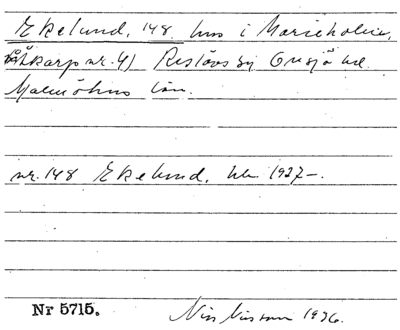 Ekelund, 148. hus i Marieholm,
Åkarp nr. 4) Reslövs by Onsjö hd.
Malmöhus län.
nr. 148 Ekelund. 1927–.
Nr 5715.
Nils Nilsson 1936.